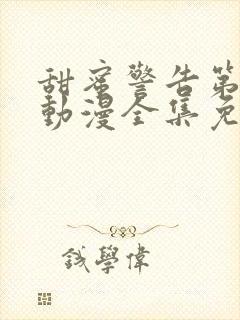 甜蜜警告第
動漫全集免
錢學偉